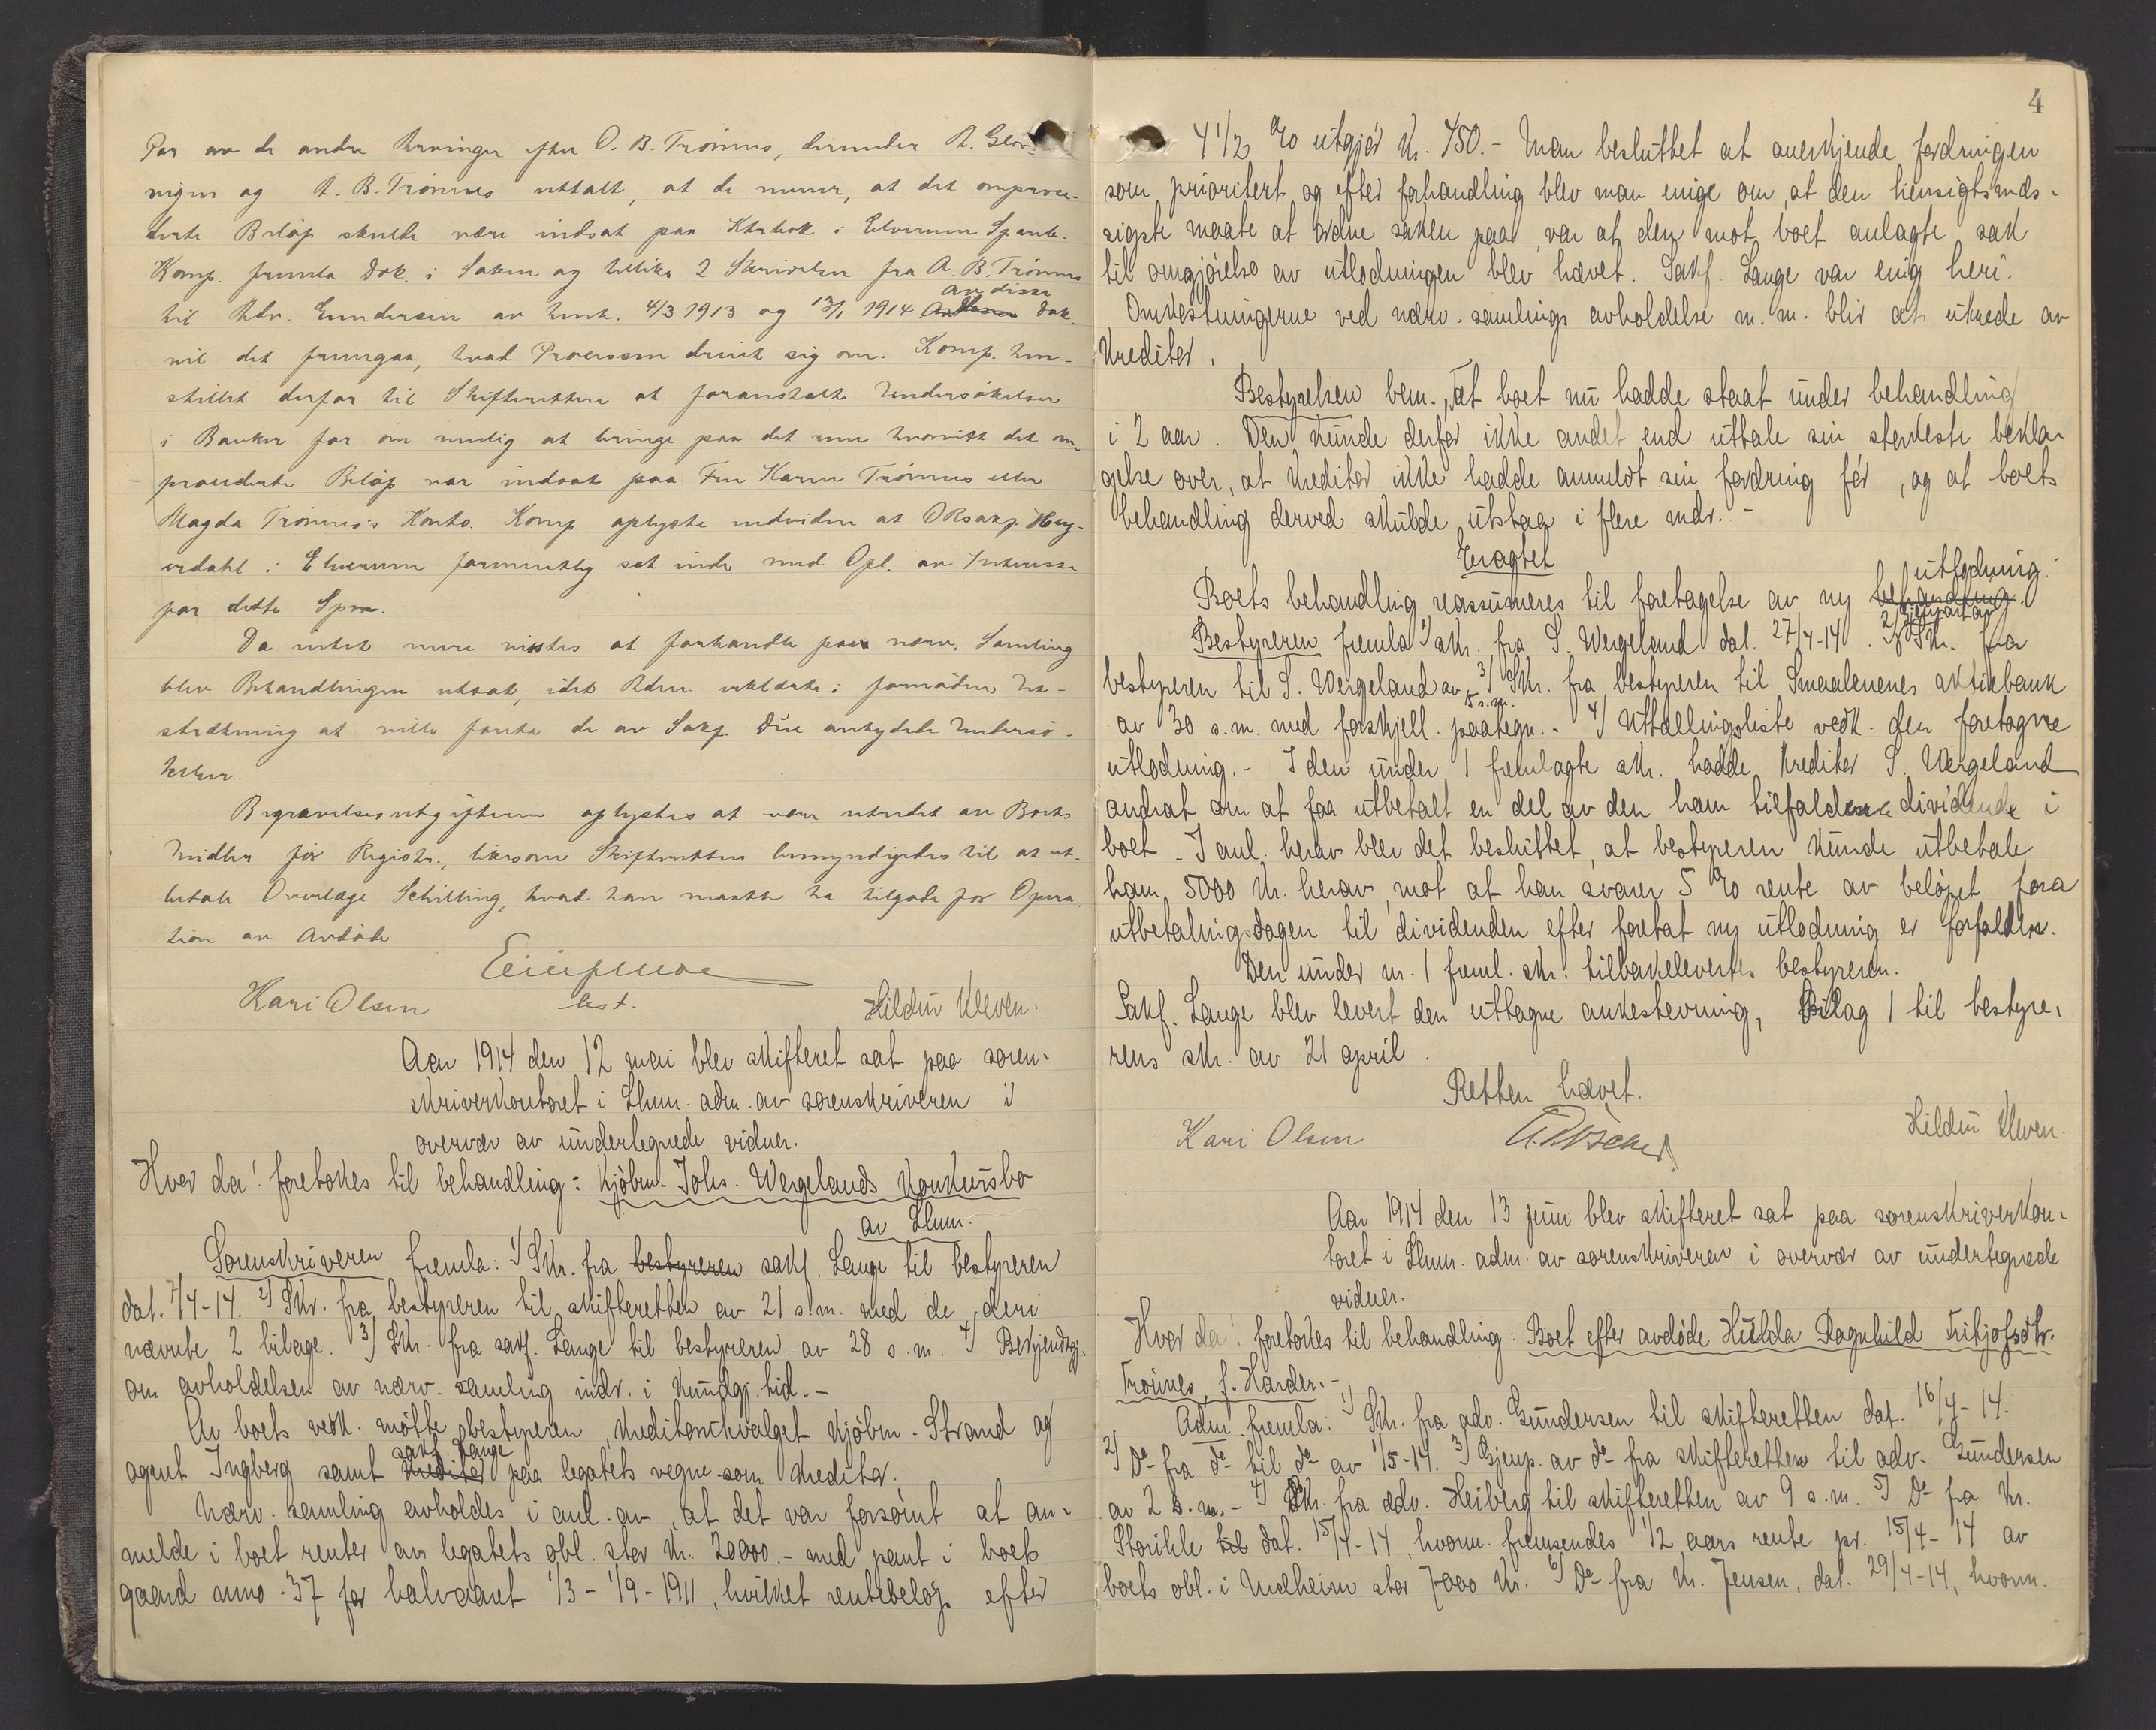 Par av de andre Arvinger efter O. B. Trønnes, derunder A.
og A. B. Trønnes uttalt, at de mener, at det omproce-
derte Beløp skulde være indsat paa Ktrbok i Elverum Spareb.
Komp. fremla Dok. i Saken og tillike 2 Skrivelser fra A. B. Trønnes
til Adv. Gundersen av henh. 4/3 1913 og 13/1 1914 av disse Dok.
vil det fremgaa, hvad Processen dreiet sig om. Komp. hen-
stillet derfor til Skifteretten at foranstalte Undersøkelser
i Banken for om mulig at bringe paa det rene hvorvidt det om-
procederte Beløp var indsat paa Fru Karen Trønnes eller
Magda Trønnes's Konto. Komp. oplyste endvidere at ORsakf. Hey-
erdahl i Elverum formentlig sat inde med Opl. av Interesse
for dette Spm.
Da intet mere vistes at forhandle paa nærv. Samling
blev Behandlingen utsat, idet Adm. erklærte i fornøden Ut-
strækning at ville foreta de av Sakf. Due antydede Undersø-
kelser.
Begravelsesutgifterne oplystes at være utredet av Boets
Midler før Registr., likesom Skifteretten bemyndigedes til at ut-
betale Overlæge Schilling, hvad han maatte ha tilgode for Opera-
tion av Avdøde
Kari Olsen cst. Hildur Kleven.
Aar 1914 den 12 mai blev skifteret sat paa soren-
skriverkontoret i Lhmr. adm. av sorenskriveren i
overvær av undertegnede vidner.
Hvor da! foretokes til behandling: Kjøbm. Johs. Wergelands konkursbo
av Lhmr.
Sorenskriveren fremla: 1) Skr. fra bestyreren sakf. Lange til bestyreren
dat. 7/4-14. 2) Skr. fra bestyreren til skifteretten av 21 s.m. med de deri
nævnte 2 bilage. 3) Skr. fra sakf. Lange til bestyreren av 28 s.m. 4) Bekjendtgj.
om avholdelsen av nærv. samling indr. i kundgj. tid. -
Av boets vedk. møtte bestyreren, kreditorutvalget kjøbm. Strand og
agent Ingberg samt kreditor sakf. Lange paa legatets vegne som kreditor.
Nærv. samling avholdes i anl. av, at det var forsømt at an-
melde i boet renter av legatets obl. stor kr. 20000.- med pant i boets
gaard mno. 37 for halvaaret 1/3 - 1/9 - 1911, hvilket rentebeløp efter
4
4 1/2 % utgjør kr. 450.- Man besluttet at anerkjende fordringen
som prioritert og efter forhandling blev man enige om, at den hensigtsmæs-
sigste maate at ordne saken paa, var at den mot boet anlagte sak
til omgjørelse av utlodningen blev hævet. Sakf. Lange var enig heri.
Omkostningerne ved nærv. samlings avholdelse m.m. blir at utrede av
kreditor.
Bestyrelsen bem., at boet nu hadde staat under behandling
i 2 aar. Den kunde derfor ikke andet end uttale sin sterkeste bekla-
gelse over, at kreditor ikke hadde anmeldt sin fordring før, og at boets
behandling derved skulde utstaa i flere mdr. -
Eragtet
Boets behandling reassumeres til foretagelse av ny behandling utlodning.
Bestyreren fremla 1) skr. fra S. Wergeland dat. 27/4-14. 2) Gjenpart av Skr. fra
bestyreren til S. Wergeland av 5 s.m. 3) Skr. fra bestyreren til Smaalenenes aktiebank
av 30 s.m. med forskjell. paategn. - 4) Uttællingsliste vedk. den foretagne
utlodning. - I den under 1 fremlagte skr. hadde kreditor S. Wergeland
andrat om at faa utbetalt en del av den ham tilfaldende dividende i
boet. I anl. herav blev det besluttet, at bestyreren kunde utbetale
ham 5000 kr. herav, mot at han svarer 5 % rente av beløpet fra
utbetalingsdagen til dividenden efter foretat ny utlodning er forfalden.
Den under nr. 1 freml. skr. tilbakelevertes bestyreren.
Sakf. Lange blev levert den uttagne ankestevning, Bilag 1 til bestyre-
rens skr. av 21 april.
Retten hævet.
Kari Olsen Hildur Kleven.
Aar 1914 den 13 juni blev skifteret sat paa sorenskriverkon-
toret i Lhmr. adm. av sorenskriveren i overvær av undertegnede
vidner.
Hvor da! foretokes til behandling: Boet efter avdøde Hulda Ragnhild Fritjofsdtr.
Trønnes, f. Harder. -
Adm. fremla: 1) Skr. fra adv. Gundersen til skifteretten dat. 16/4-14.
2) Do fra do til do av 1/5-14. 3) Gjenp. av do fra skifteretten til adv. Gundersen
av 2 s.m. - 4) Skr. fra adv. Heiberg til skifteretten av 9 s.m. 5) Do fra Kr.
Storihle til dat. 15/4-14, hvorm. fremsendes 1/2 aars rente pr. 15/4-14 av
boets obl. i Melheim stor 7000 kr. 6) Do fra Kr. Jensen, dat. 29/4-14, hvorm.